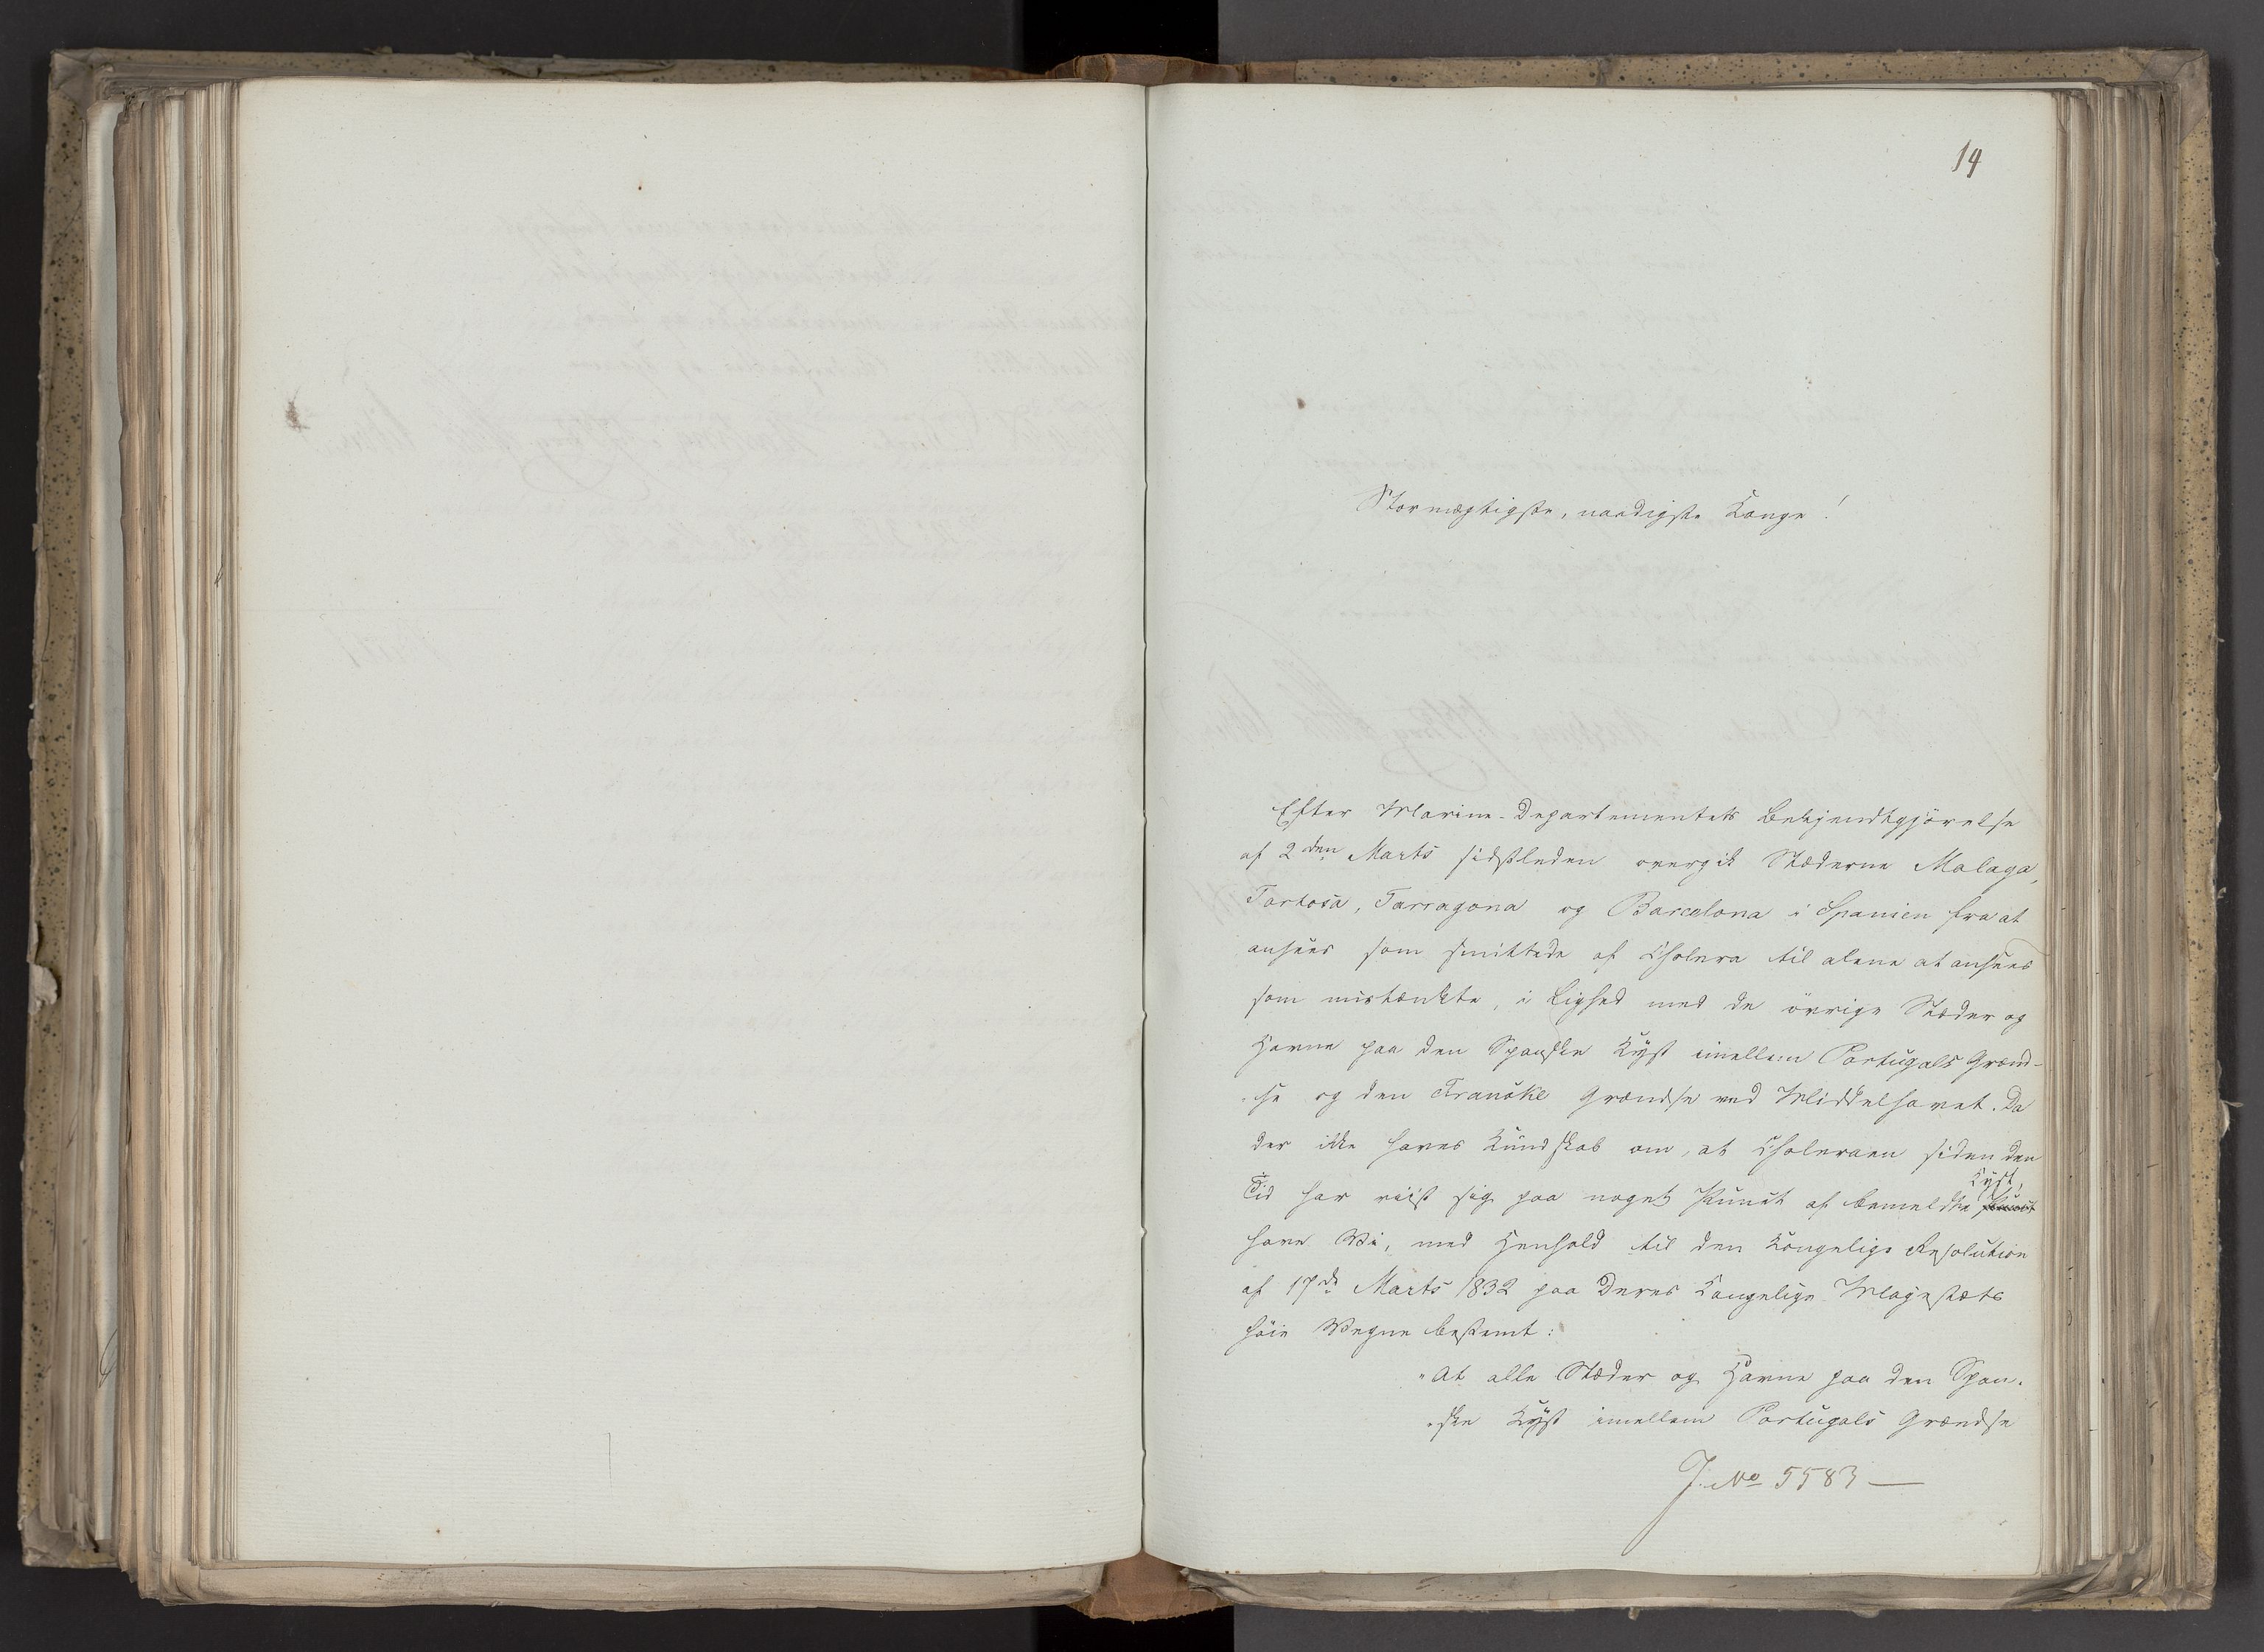 14
Stormægtigste, naadigste Konge!
Efter Marine-Departementets Bekjendtgjörelse
af 2den Marts sidstleden overgik Stæderne Malaga,
Tortosa, Tarragona og Barcelona i Spanien fra at
ansees som smittede af Cholera til alene at ansees
som mistænkte, i Lighed med de övrige Stæder og
Havne paa den Spanske Kyst imellem Portugals Grænd-
se og den Franske Grændse ved Middelhavet. Da
der ikke haves Kundskab om, at Choleraen siden den
Tid har viist sig paa noget Punct af bemeldte Kyst,
have Vi, med Henhold til den Kongelige Resolution
af 17de Marts 1832 paa Deres Kongelige Majestæts
höie Vegne bestemt:
"At alle Stæder og Havne paa den Span-
"ske Kyst imellem Portugals Grændse
J. No 5583 —